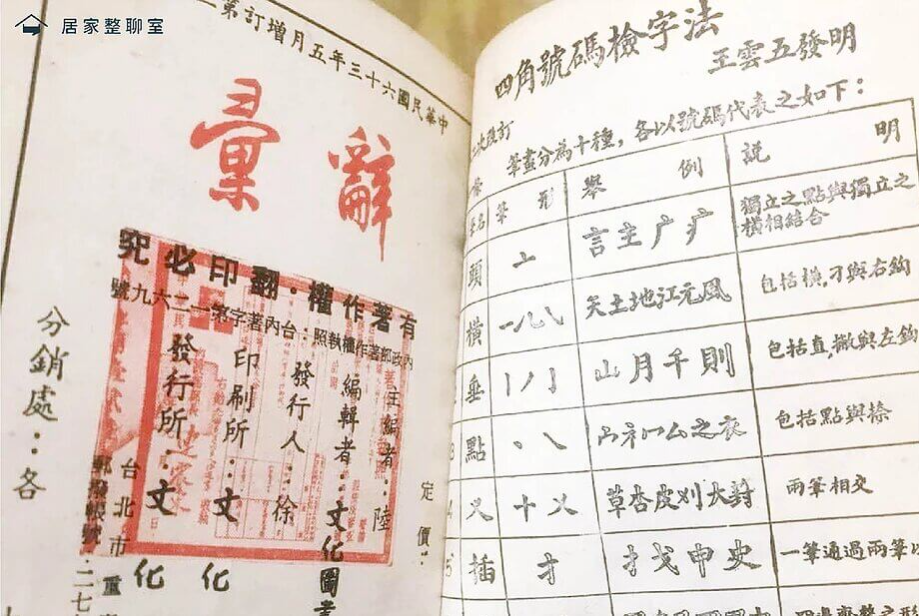 居家整聊室
中華民國六十三年五月增訂第二
辭彙
有著作權．翻印必究
內政部著作權執照：台內著字第一二六九號
主編者：陸
編輯者：文化圖書
發行人：徐
印刷所：文化
發行所：文化
台北市重
郵撥帳號：二七
定價：
分銷處：各
四角號碼檢字法
王雲五發明
次改訂
筆畫分為十種，各以號碼代表之如下：
筆名 筆形 舉例 說明
頭 亠 言主广疒 獨立之點與獨立之橫相結合
橫 一 天土地江元風 包括橫，刁與右鈎
垂 山月千則 包括直，撇與左鈎
點 之衣 包括點與捺
4 叉 十乂 草杏皮刈大對 兩筆相交
5 插 扌 扌戈申史 一筆通過兩筆以